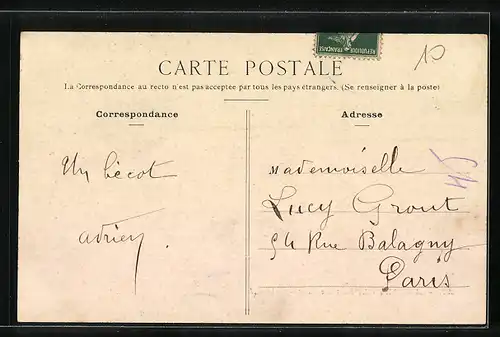 REPUBLIQUE FRANÇAISE
10
CARTE POSTALE
La Correspondance au recto n'est pas acceptée par tous les pays étrangers. (Se renseigner à la poste)
Correspondance
Un bécot
Adrien.
Adresse
Mademoiselle
Lucy Grout
54 Rue Balagny
Paris
45